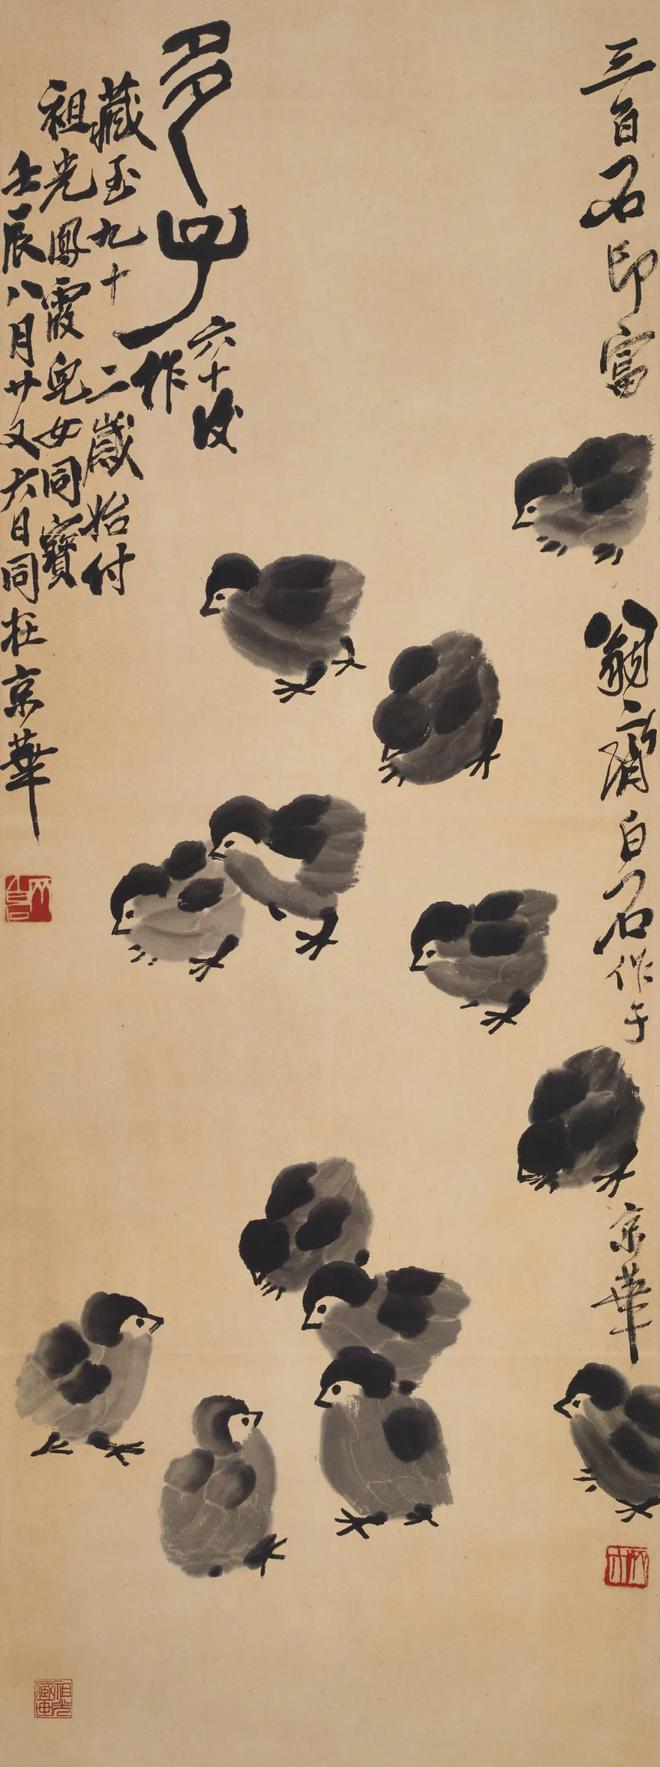 三百石印富翁齊白石作于京華
多子
六十後
作
藏至九十二歲始付
祖光鳳霞兒女同寶
壬辰八月廿又六日同在京華